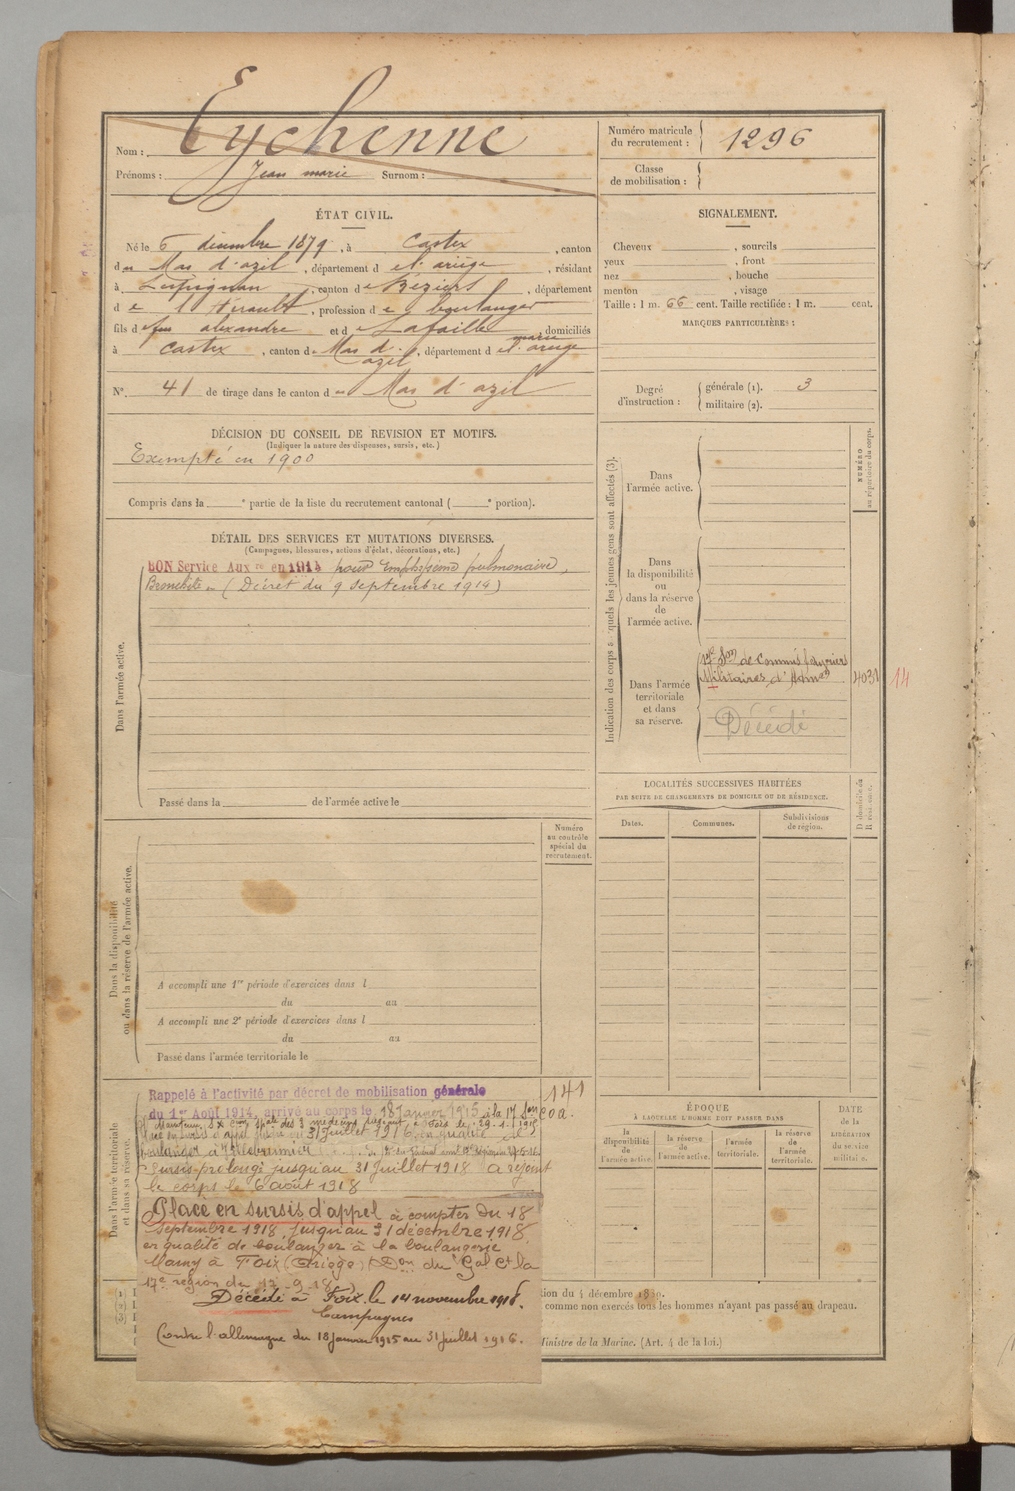 Nom : Eychenne
Prénoms : Jean marie Surnom :
Numéro matricule du recrutement : 1296
Classe de mobilisation :
ÉTAT CIVIL.
Né le 6 décembre 1879, à Castex, canton
du Mas d'azil, département de l'ariège, résidant
à Lespignan, canton de Béziers, département
de l'Hérault, profession de boulanger
fils de feu alexandre et de Lafaille marie, domiciliés
à Castex, canton du Mas d'azil, département de l'ariège
N° 41 de tirage dans le canton du Mas d'azil
SIGNALEMENT.
Cheveux , sourcils
yeux , front
nez , bouche
menton , visage
Taille : 1 m. 66 cent. Taille rectifiée : 1 m. cent.
MARQUES PARTICULIÈRES :
Degré d'instruction : générale (1). 3
militaire (2).
DÉCISION DU CONSEIL DE REVISION ET MOTIFS.
(Indiquer la nature des dispenses, sursis, etc.)
Exempté en 1900
Compris dans la e partie de la liste du recrutement cantonal ( e portion).
DÉTAIL DES SERVICES ET MUTATIONS DIVERSES.
(Campagnes, blessures, actions d'éclat, décorations, etc.)
BON Service Aux re en 1914 pour Emphysème pulmonaire,
Bronchite (Décret du 9 Septembre 1914)
Dans l'armée active.
Passé dans la de l'armée active le
Indication des corps auxquels les jeunes gens sont affectés (3).
NUMÉRO au répertoire du corps.
Dans l'armée active.
Dans la disponibilité ou dans la réserve de l'armée active.
Dans l'armée territoriale et dans sa réserve.
17e Son de Commis ouvriers
Militaires d'Admon
4031
14
Décédé
LOCALITÉS SUCCESSIVES HABITÉES
PAR SUITE DE CHANGEMENTS DE DOMICILE OU DE RÉSIDENCE.
Dates.
Communes.
Subdivisions de région.
D domicile ou R résidence.
Numéro au contrôle spécial du recrutement.
Dans la disponibilité ou dans la réserve de l'armée active.
A accompli une 1re période d'exercices dans l
du au
A accompli une 2e période d'exercices dans l
du au
Passé dans l'armée territoriale le
ÉPOQUE
À LAQUELLE L'HOMME DOIT PASSER DANS
la disponibilité de l'armée active.
la réserve de l'armée active.
l'armée territoriale.
la réserve de l'armée territoriale.
DATE de la LIBÉRATION du service militaire.
Dans l'armée territoriale et dans sa réserve.
Rappelé à l'activité par décret de mobilisation générale
141
du 1er Août 1914, arrivé au corps le 18 Janvier 1915 à la 17 Son C O A.
Maintenu Sx Com Spale des 3 médecins à Foix le 29.1.1915
31 Juillet 1916, en qualité de
boulanger à
Sursis prolongé jusqu'au 31 Juillet 1918 a rejoint
le corps le 6 août 1918
Place en sursis d'appel à compter du 18
septembre 1918 jusqu'au 31 décembre 1918
en qualité de boulanger à la boulangerie
Mamy à Foix (Ariège) Don du Gal Ct la
17e région du 17-9-18)
Décédé à Foix le 14 novembre 1918.
Campagnes
Contre l'allemagne du 18 Janvier 1915 au 31 Juillet 1916.
tion du 4 décembre
comme non exercés tous les hommes n'ayant pas passé au drapeau.
Ministre de la Marine. (Art. 4 de la loi.)